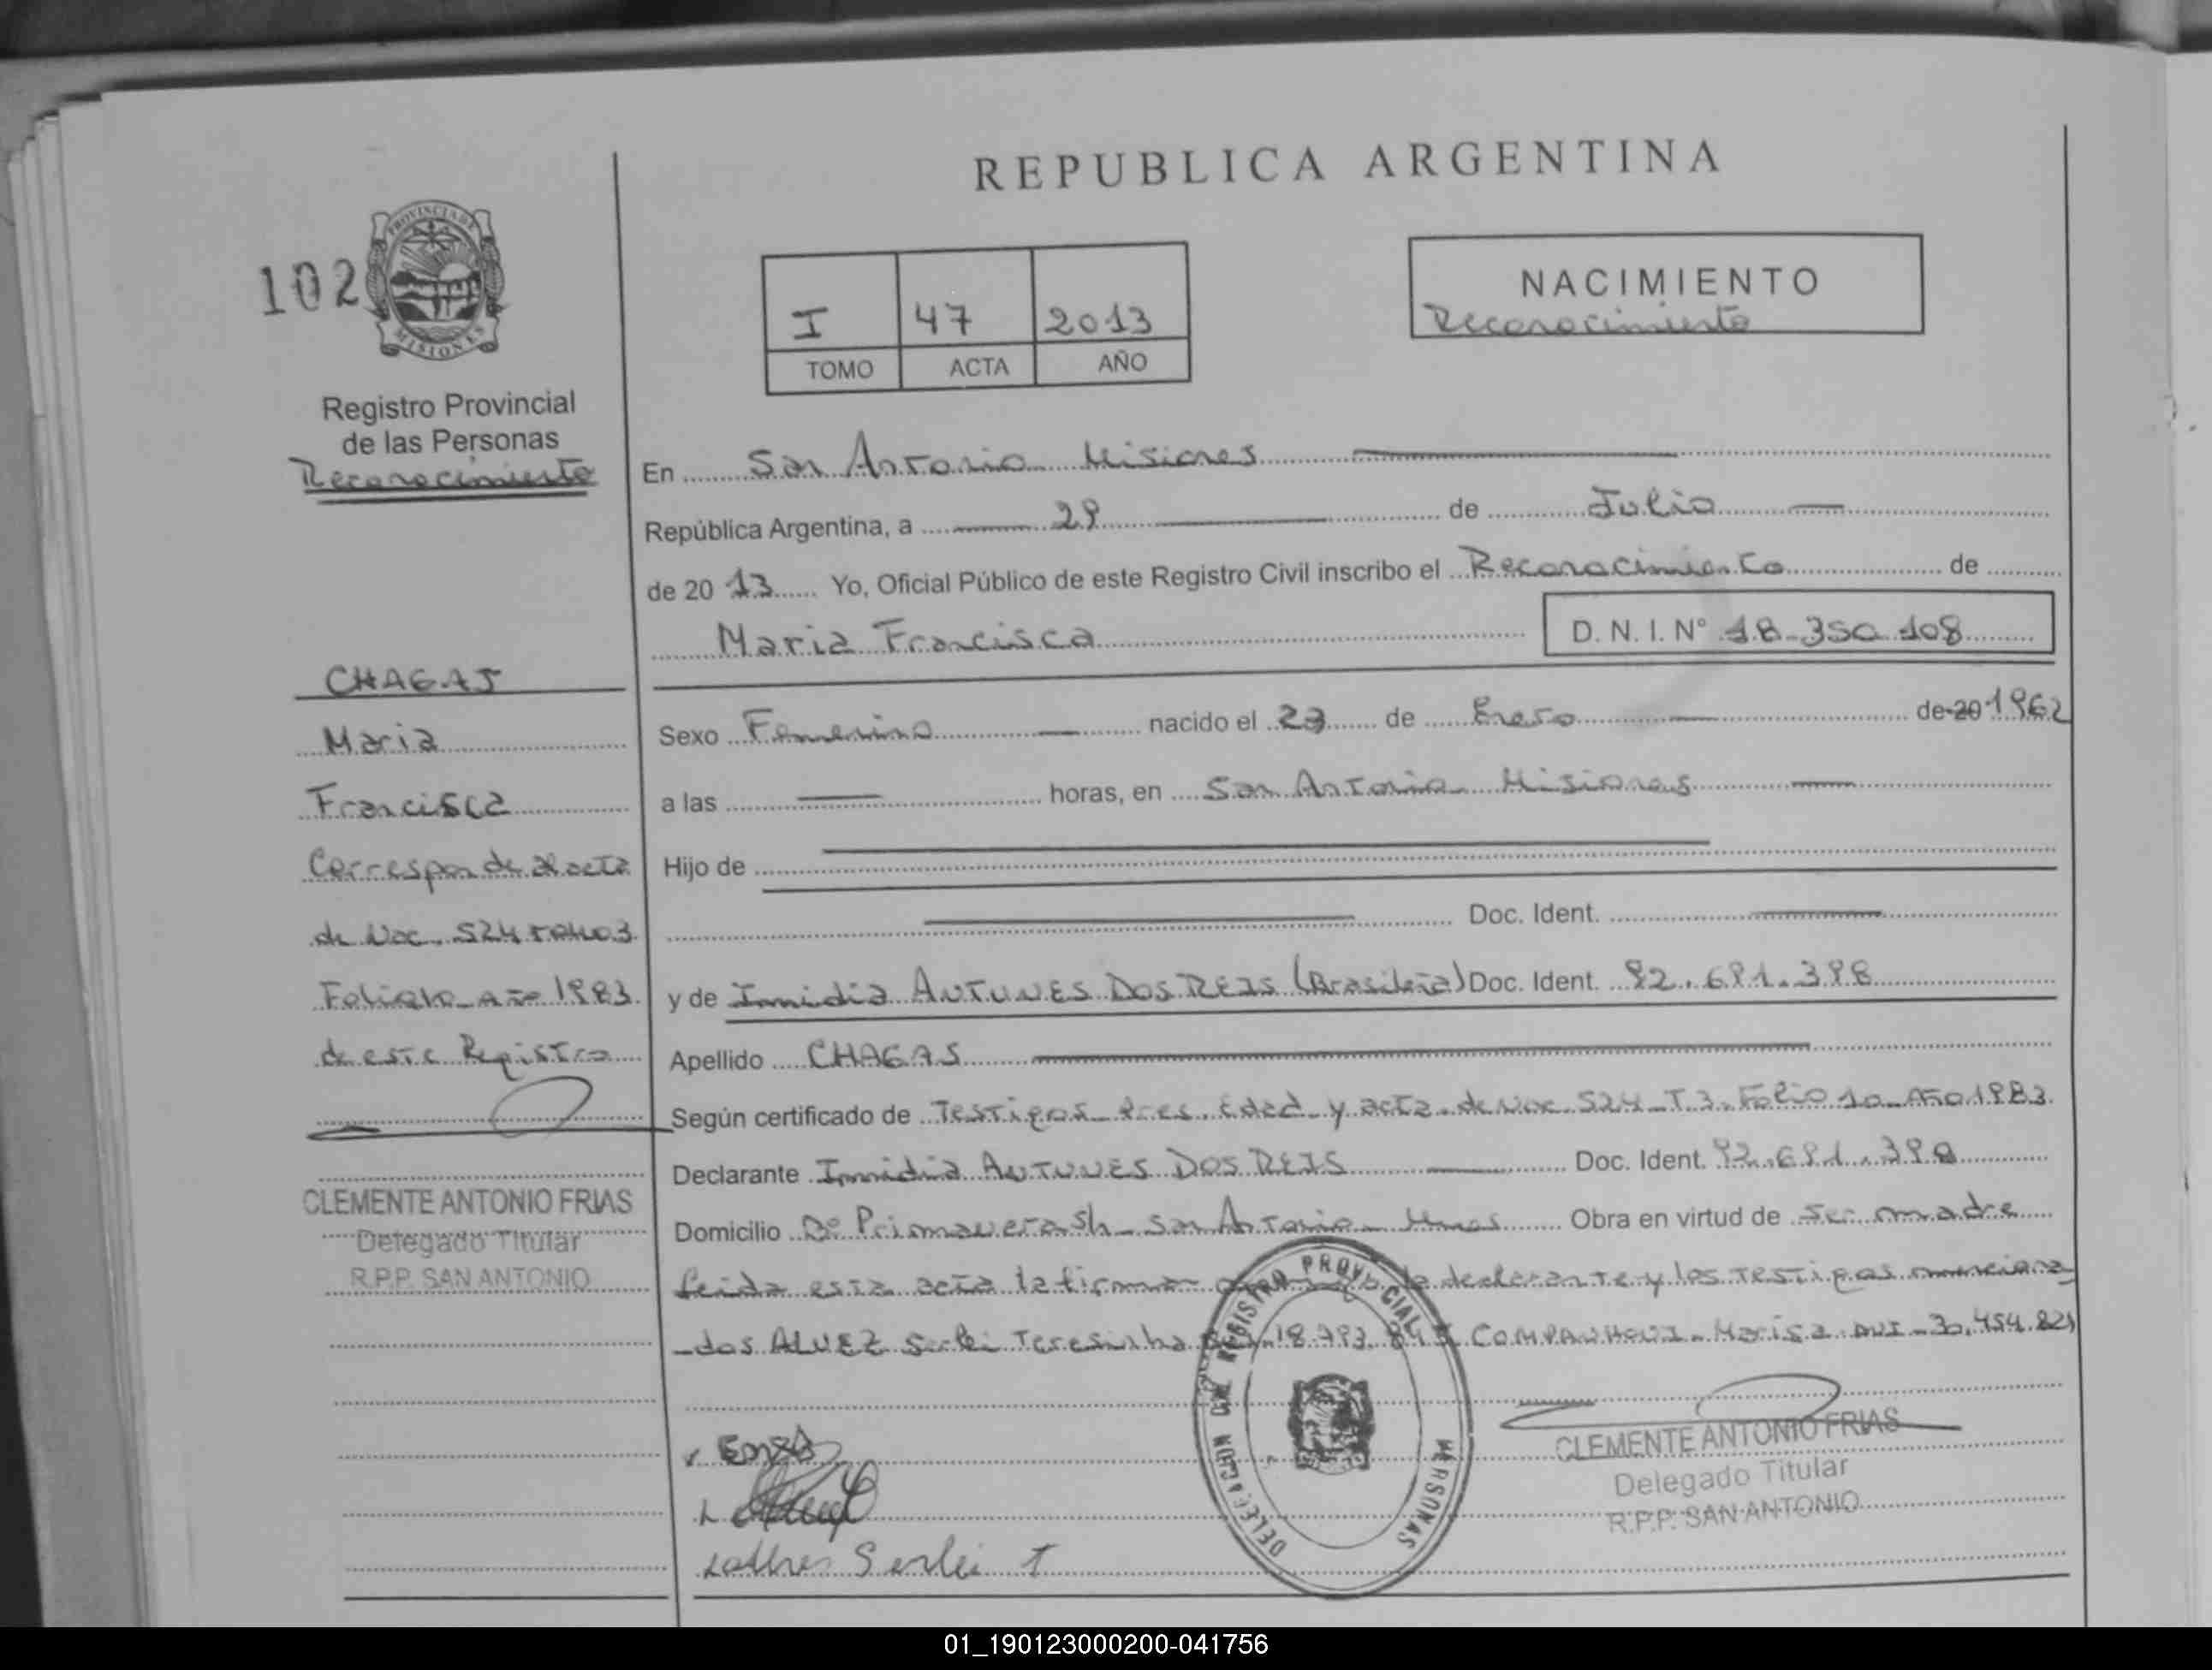 REPUBLICA ARGENTINA
102
PROVINCIA DE
MISIONES
Registro Provincial
de las Personas
Reconocimiento
I 47 2013
TOMO ACTA AÑO
NACIMIENTO
Reconocimiento
En San Antonio Misiones
República Argentina, a 29 de Julio
de 20 13 Yo, Oficial Público de este Registro Civil inscribo el Reconocimiento de
Maria Francisca D. N. I. N° 18.350.108
Sexo Femenino nacido el 23 de Enero de 20 1962
a las horas, en San Antonio Misiones
Hijo de
Doc. Ident.
y de Inmidia ANTUNES DOS REIS (Brasileña) Doc. Ident. 92.691.398
Apellido CHAGAS
Según certificado de Testigos Pres. Edad y acta de Nac 524 T.3 Folio 10 Año 1983
Declarante Inmidia ANTUNES DOS REIS Doc. Ident. 92.691.398
Domicilio Bº Primavera S/n San Antonio Mnes Obra en virtud de ser madre
leida esta acta la firman la declarante y los testigos menciona
-dos ALVEZ Serlei Teresinha 18.793.843 Marisa DNI 30.454.821
CHAGAS
Maria
Francisca
Corresponde al acta
de Nac. 524 TOMO 3
Folio 10 año 1983
de este Registro
CLEMENTE ANTONIO FRIAS
Delegado Titular
R.P.P. SAN ANTONIO
DELEGACION DEL REGISTRO PROVINCIAL PERSONAS
CLEMENTE ANTONIO FRIAS
Delegado Titular
R.P.P. SAN ANTONIO
Serlei T
01_190123000200-041756